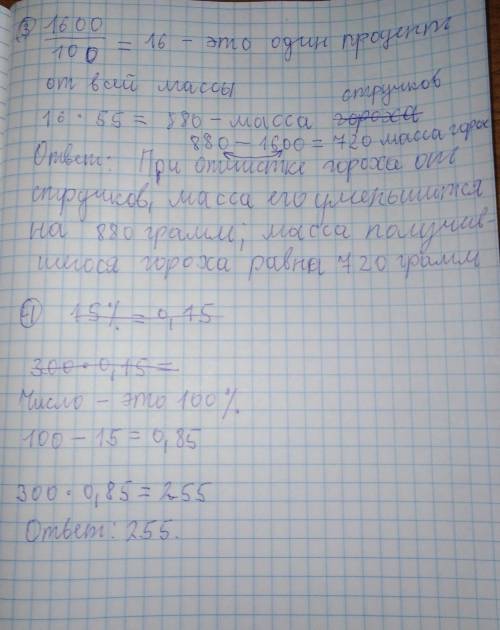 ③ 1600
100 = 16 - это один процент
от всей массы
стручков
16 · 55 = 880 - масса гороха
880 - 1600 = 720 масса горох
Ответ: При отчистке гороха от
стручков, масса его уменьшится
на 880 грамм; масса получив
шегося гороха равна 720 грамм
15% = 0,15
300 · 0,15 =
Число - это 100%
100 - 15 = 0,85
300 · 0,85 = 255
Ответ: 255.